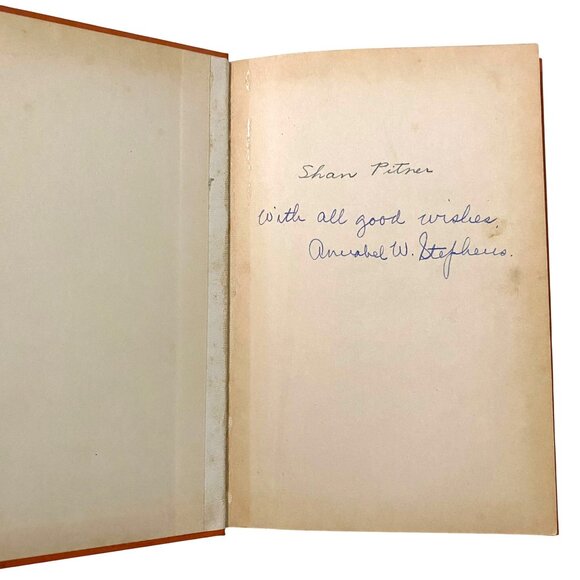 Shan Pitner
With all good wishes,
Annabel W. Stephens.